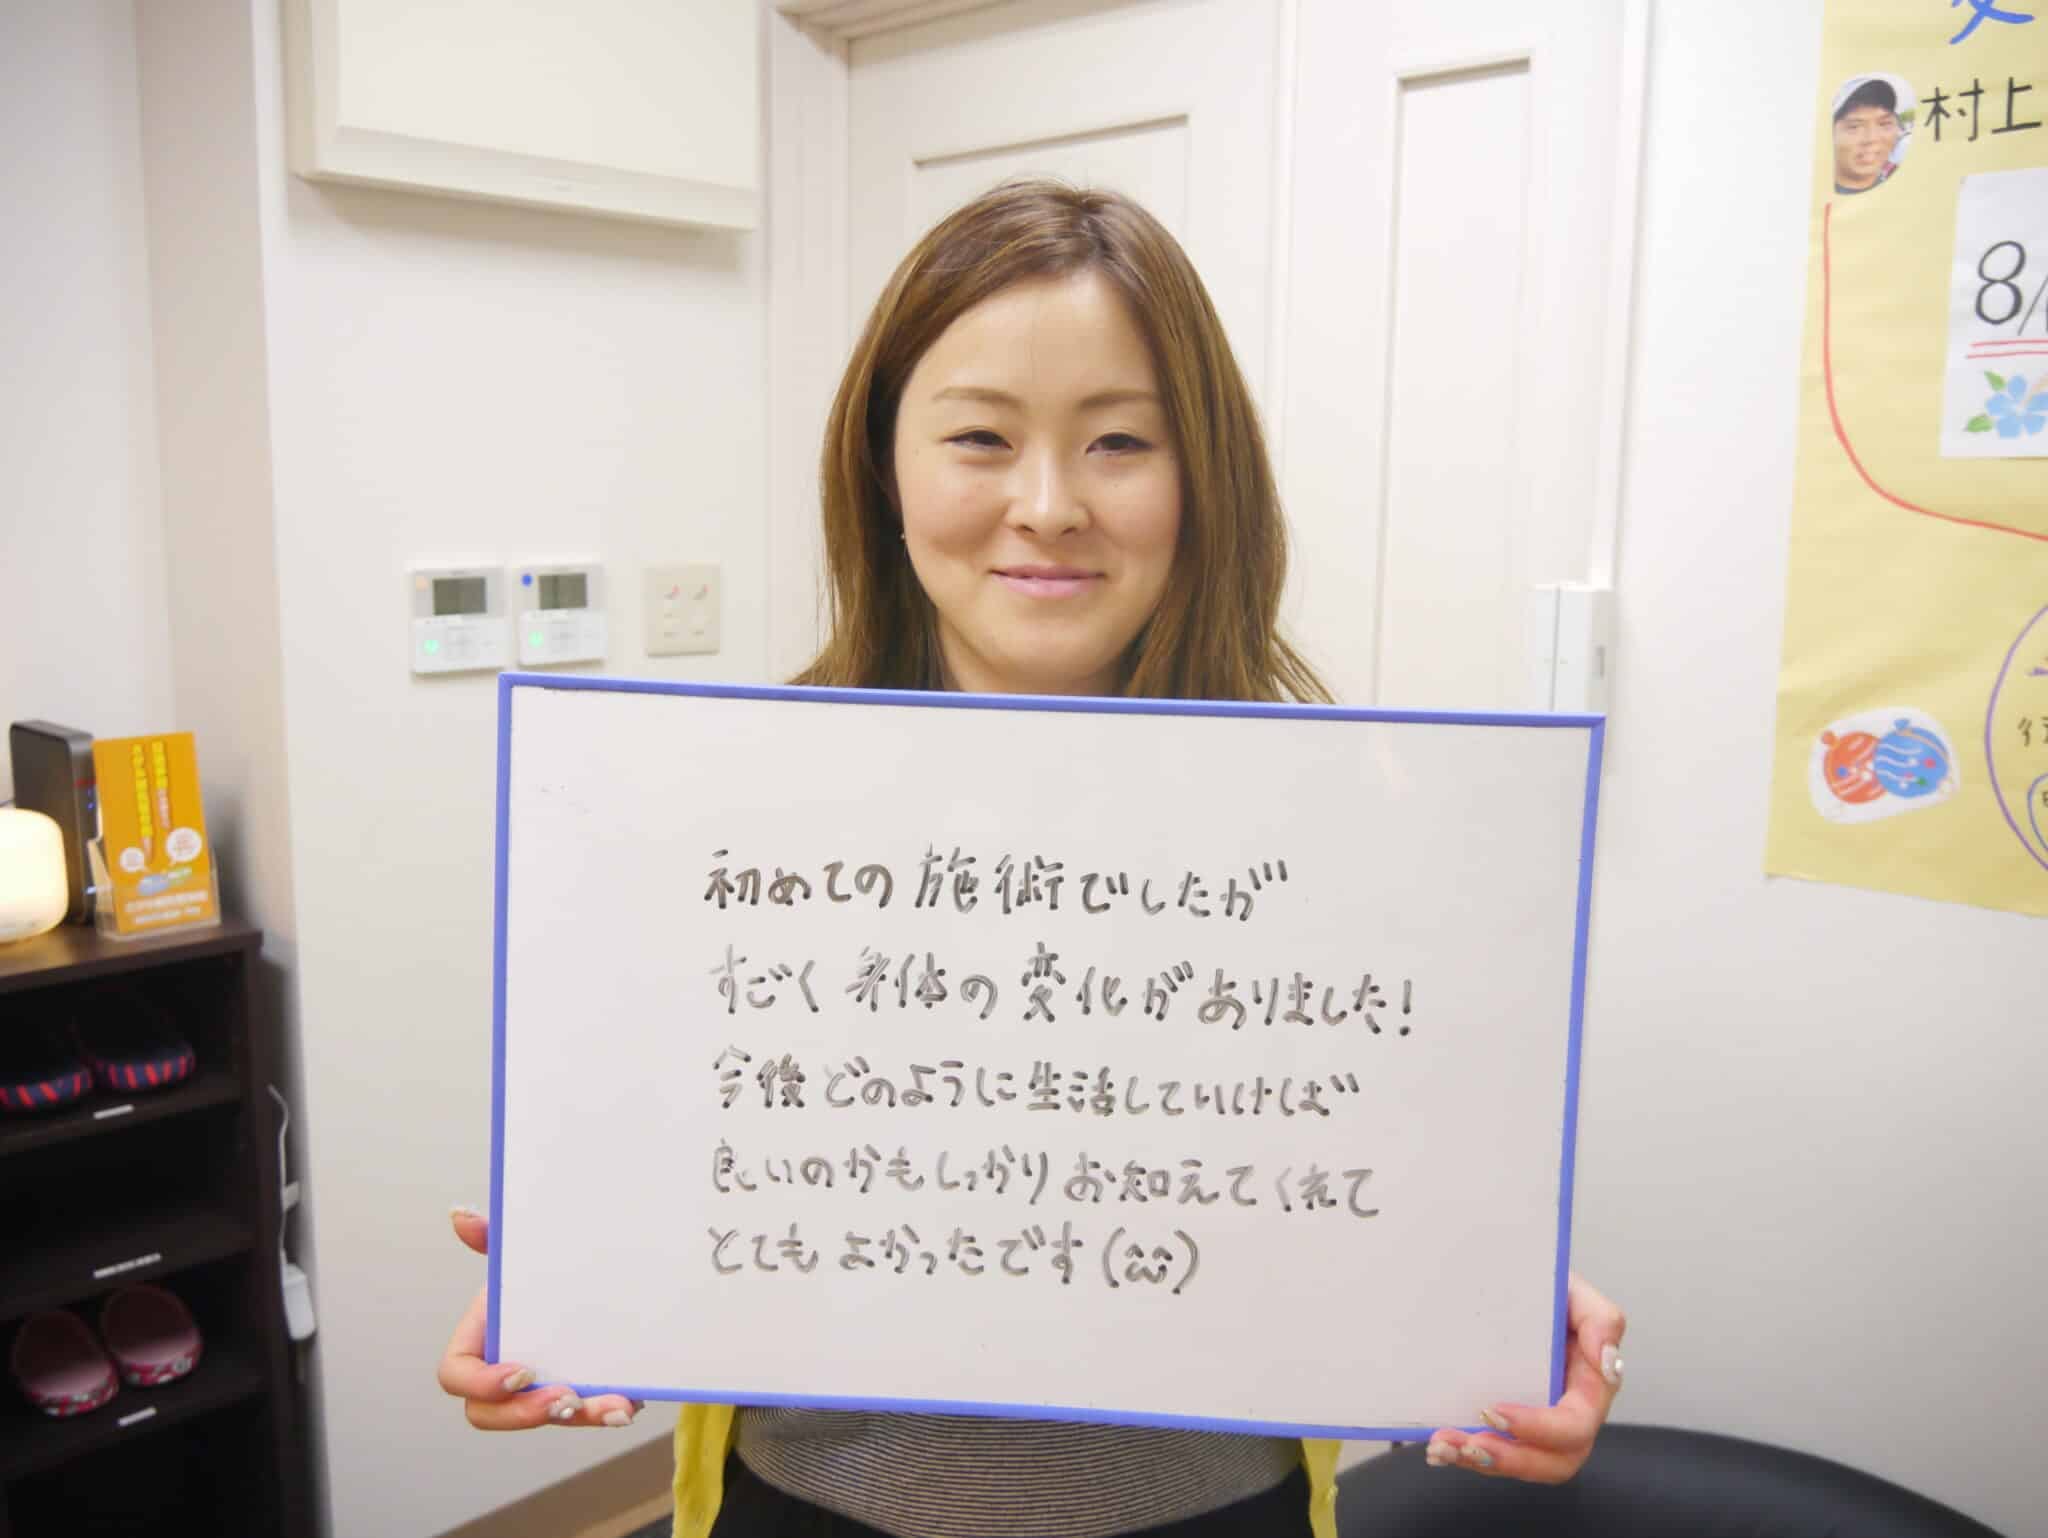 初めての施術でしたが
すごく身体の変化がありました!
今後どのように生活していけば
良いのかもしっかりお知えてくれて
とてもよかったです(^^)
村上
8/